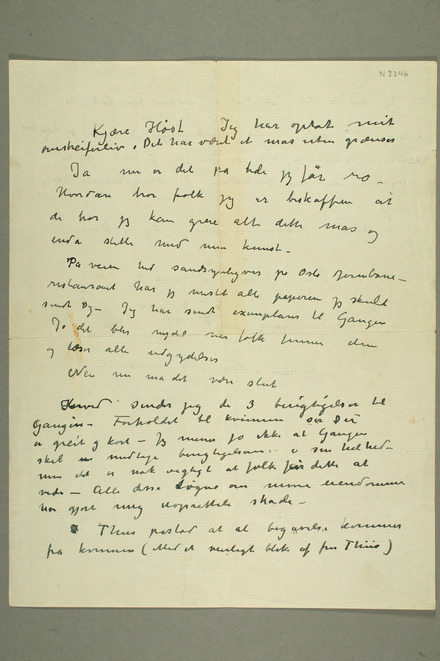 N 3246
Kjære Høst Jeg har optat mit
omstreiferliv. Det har været et mas uten grænser
Ja nu er det på tide jeg får ro –
Hvordan tror folk jeg er beskaffen at
de tror jeg kan greie alt dette mas og
enda stelle med min kunst –
På veien hid sandsynligvis på Oslo jernbane-
restaurant har jeg mistet alle papirer jeg skulde
sendt Dig – Jeg har sendt exemplarer til Gauguin
Jo det blir nydel når folk finner dem
og læser alle udgydelser
Men nu må det være slut
Herved sender jeg de 3 berigtigelser til
Gauguin – Forholdet til kvinnen
er greit og kort – Jeg mener jo ikke at Gauguin
skal medtage berigtigelsene i sin helhed –
men det er nok vigtigt at folk får dette at
vide – Alle disse løgne om mine eiendomme
har gjort mig uoprettelig skade –
Thiis påstod at al begavelse kommer
fra kvinnen (Med et venligt blik af fru Thiis)